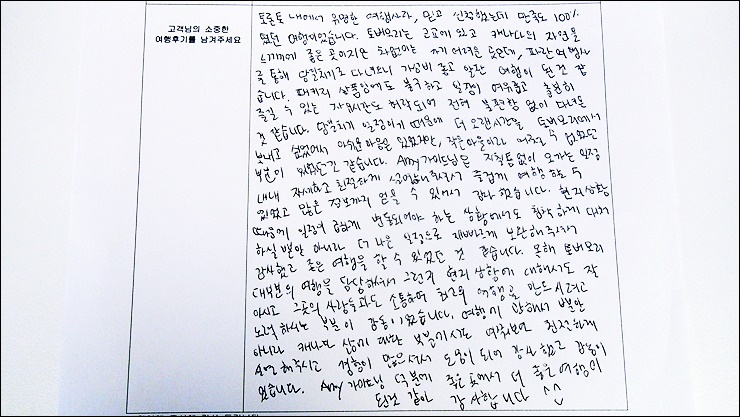 고객님의 소중한
여행후기를 남겨주세요
토론토 내에서 유명한 여행사라, 믿고 신청했는데 만족도 100%
였던 여행이었습니다. 토버모리는 근교에 있고 캐나다의 자연을
느끼기에 좋은 곳이지만 차없이는 가기 어려운 곳인데, 파란여행사
를 통해 당일치기로 다녀오니 가성비 좋고 알찬 여행이 된것 같
습니다. 패키지 상품임에도 불구하고 일정이 여유롭고 충분히
즐길 수 있는 자유시간도 허락되어 전혀 불편함 없이 다녀온
것 같습니다. 당일치기 일정이기 때문에 더 오랜시간을 토버모리에서
보내고 싶었어서 아쉬운 마음은 있었지만, 작은마을이라 어쩔 수 없었던
부분이 있었던것 같습니다. Amy가이드님은 지침틈없이 오가는 일정
내내 자세하고 친절하게 설명해주셔서 즐겁게 여행 할 수
있었고 많은 정보까지 얻을 수 있어서 감사 했습니다. 현지상황
때문에 일정이 급하게 변동되어야 하는 상황에서도 침착하게 대처
하실뿐만 아니라 더 나은 일정으로 재빠르게 보완해주셔서
감사했고 좋은 여행을 할 수 있었던 것 같습니다. 올해 토버모리
대부분의 여행을 담당하셔서 그런지 현지 상황에 대해서도 잘
아시고 그곳의 사람들과도 소통하며 최고의 여행을 만드시려고
노력하시는 부분이 감동이었습니다. 여행지 관해서 뿐만
아니라 캐나다 삶에 대한 부분까지도 여쭤보면 친절하게
설명해주시고 경험이 많으셔서 도움이 되어 감사했고 감동이
었습니다. Amy 가이드님 덕분에 좋은 곳에서 더 좋은 여행이
된것 같아 감사합니다 ^^